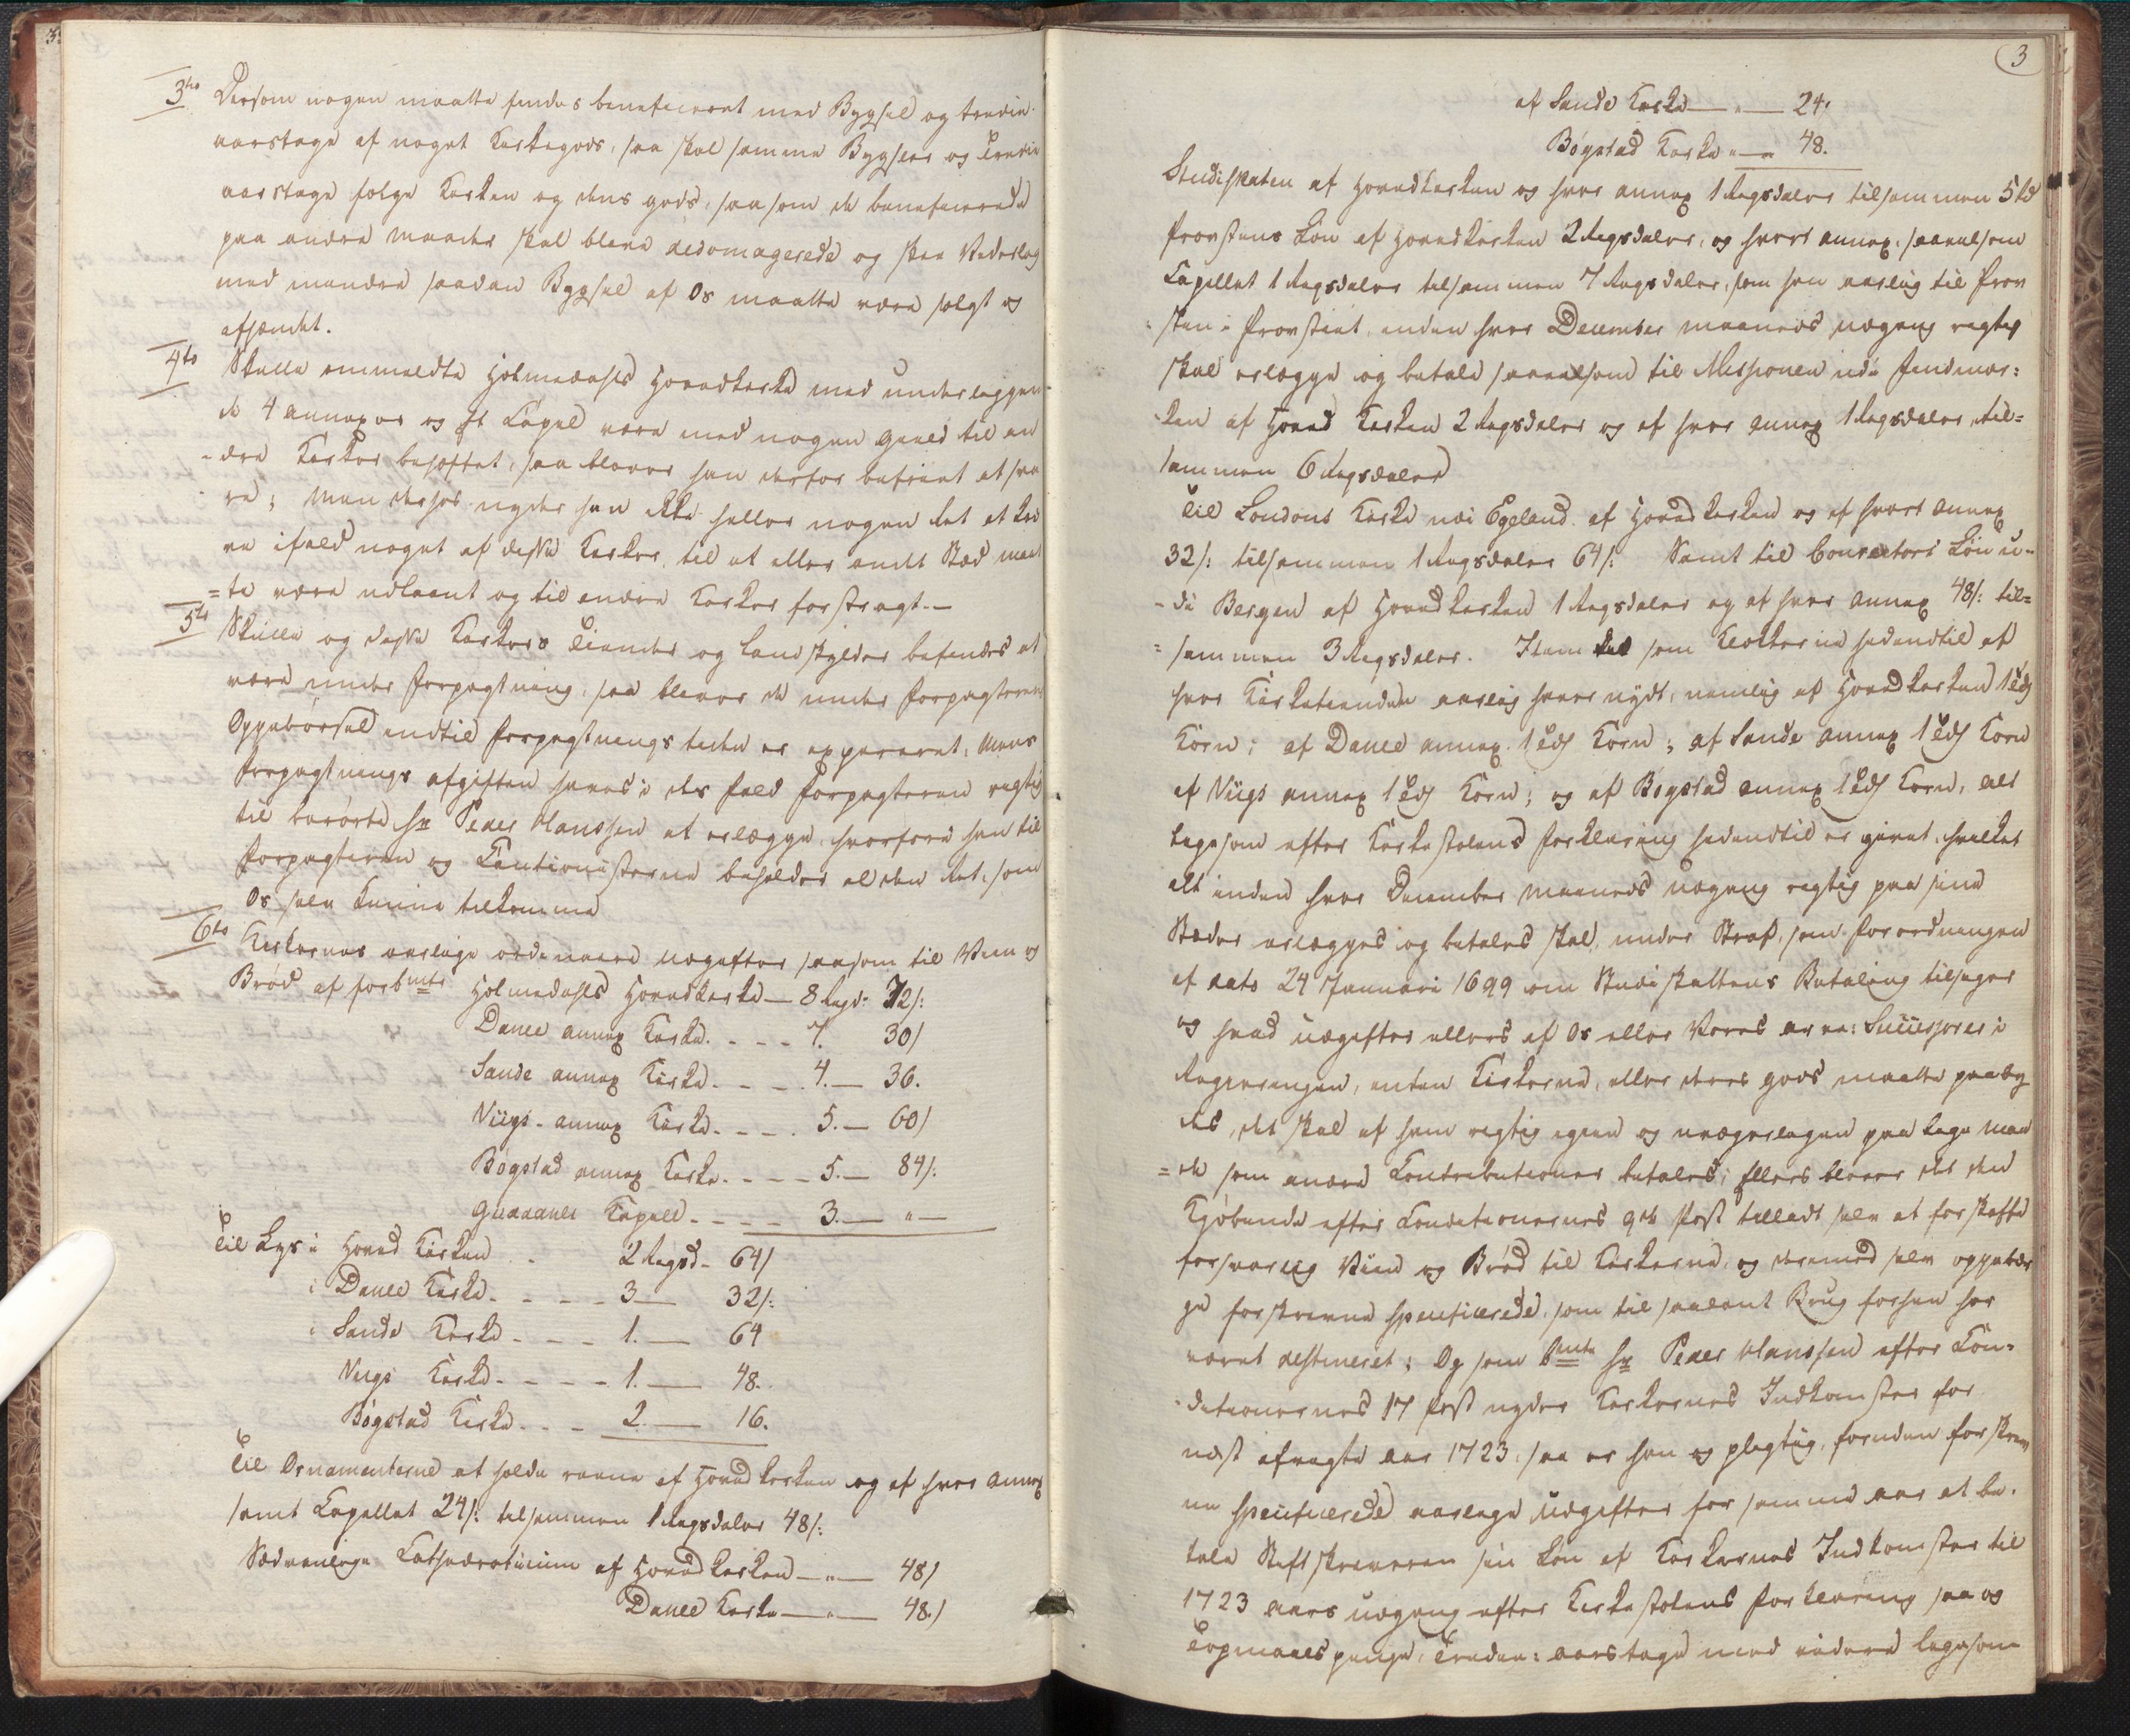 3tio Dersom nogen maatte findes beneficeret med Bygsel og tredie
aarstage af noget Kirkegods, saa skal samme Bygsler og Tredie
aarstage følge Kirken og dens gods, saasom de beneficerede
paa andre maader skal blive dedomagerede og skee Vederlag
med mindre saadan Bygsel af Os maatte være solgt og
afhændet.
4to Skulle ommeldte Holmedahls Hovedkirke med underlaggen
de 4 annexer og et Capel være med nogen gield til an
-dre Kirker behæftet, saa bliver han derfor befriet at sva
re; Men derhos nyder han ikke heller nogen Ret at kræ
ve ifald noget af disse Kirker, til et eller andet Stæd maat
=te være udlaant og til andre Kirker forstragt.-
5to Skulle og disse Kirkers Tiender og Landskylder befindes at
være under forpagtning, saa bliver de under forpagterens
Oppebørsel indtil forpagtnings tiden er expireret, Mens
forpagtnings afgiften haves i det fald Forpagteren rigtig
til berørte Hr Peder Hanssen at erlægge, hvorfore han til
Forpagteren og Cautionisterne beholder al den Ret, som
Os selv kunne tilkomme
6to Kirkernes aarlige ordinaire udgifter saasom til Viin og
Brød af forbmte Holmedahls Hovedkirke — 8 Rigsd: 72/:
Dale annex Kirke. - - - 7. 30/
Sande annex Kirke. - - - 4. — 36.
Viigs - annex Kirke. - - - 5. — 60/
Bøgstad annex Kirke. - - - 5. — 84/:
Capell - - - - 3. — " —
Til Lys i Hoved Kirken - 2 Rigsd - 64/
i Dale Kirke. - - - - 3 — 32/:
i Sande Kirke - - - 1. — 64
Viigs Kirke - - - - 1. — 48.
Bøgstad Kirke - - - 2. — 16.
Til Ornamenterne at holde reene af Hovedkirken og af hver annex
samt Capellet 24/: tilsammen 1 Rigsdaler 48/:
Sædvanlige Cathedraticum af Hovedkirken — " — 48/
Dale Kirke — " — 48./
3
af Sande Kirke — " — 24/
Bøgstad Kirke " — " 48.
Studiiskatten af Hovedkirken og hver annex 1 Rigsdaler tilsammen 5 Rd
Provstens Løn af Hovedkirken 2 Rigsdaler, og hvert annex, saavelsom
Capellet 1 Rigsdaler tilsammen 7 Rigsdaler, som han aarlig til Prov
sten i Provstiet inden hver December maaneds udgang rigtig
skal erlægge og betale saavelsom til Missionen udi Findmar:
-ken af Hoved Kirken 2 Rigsdaler og af hver annex 1 Rigsdaler, til=
sammen 6 Rigsdaler
Til Londons Kirke udi Egeland af Hovedkirken og af hvert annex
32/: tilsammen 1 Rigsdaler 64/: Samt til Conrectors Løn u-
-di Bergen af Hovedkirken 1 Rigsdaler og af hver annex 48/: til=
=sammen 3 Rigsdaler. Item det som Klokkerne hidindtil af
hver Kirketienden aarlig haver nydt, nemlig af Hovedkirken 1
Korn; af Dale annex 1 Korn; af Sande annex 1 Korn
af Viigs annex 1 Korn; og af Bøgstad annex 1 Korn, alt
ligesom efter Kirkestolens forklaring hidindtil er givet, hvilket
alt inden hver December maaneds udgang rigtig paa sine
Stæder erlægges og betales skal, under Straf, som forordningen
af dato 24 Januari 1699 om Studiiskattens Betaling tilsiger
og hvad udgifter ellers af Os eller Vores arve: Successorer i
Regieringen, enten Kirkerne, eller deres gods maatte paaby
des, det skal af ham rigtig igien og uvægerlagen paa lige maa
=de som andre Contributioner betales; Ellers bliver det den
Kjøbende efter Conditionernes 9de Post tilladt selv at forskaffe
forsvarlig Viin og Brød til Kirkerne, og derimod selv oppebær
ge forskrevne specificerede, som til saadant Brug forhen har
været destineret; Og som bmte Hr Peder Hanssen efter Con-
-ditionernes 17 Post nyder Kirkernes Indkomster for
næst afvigte aar 1723, saa er han og pligtig, foruden forskrev
ne specificerede aarlige udgifter for samme aar at be-
tale Stiftskriveren sin Løn af Kirkernes Indkomster til
1723 aars udgang efter Kirkestolens forklaring saa og
penge, Tredie: aarstage med videre ligesom